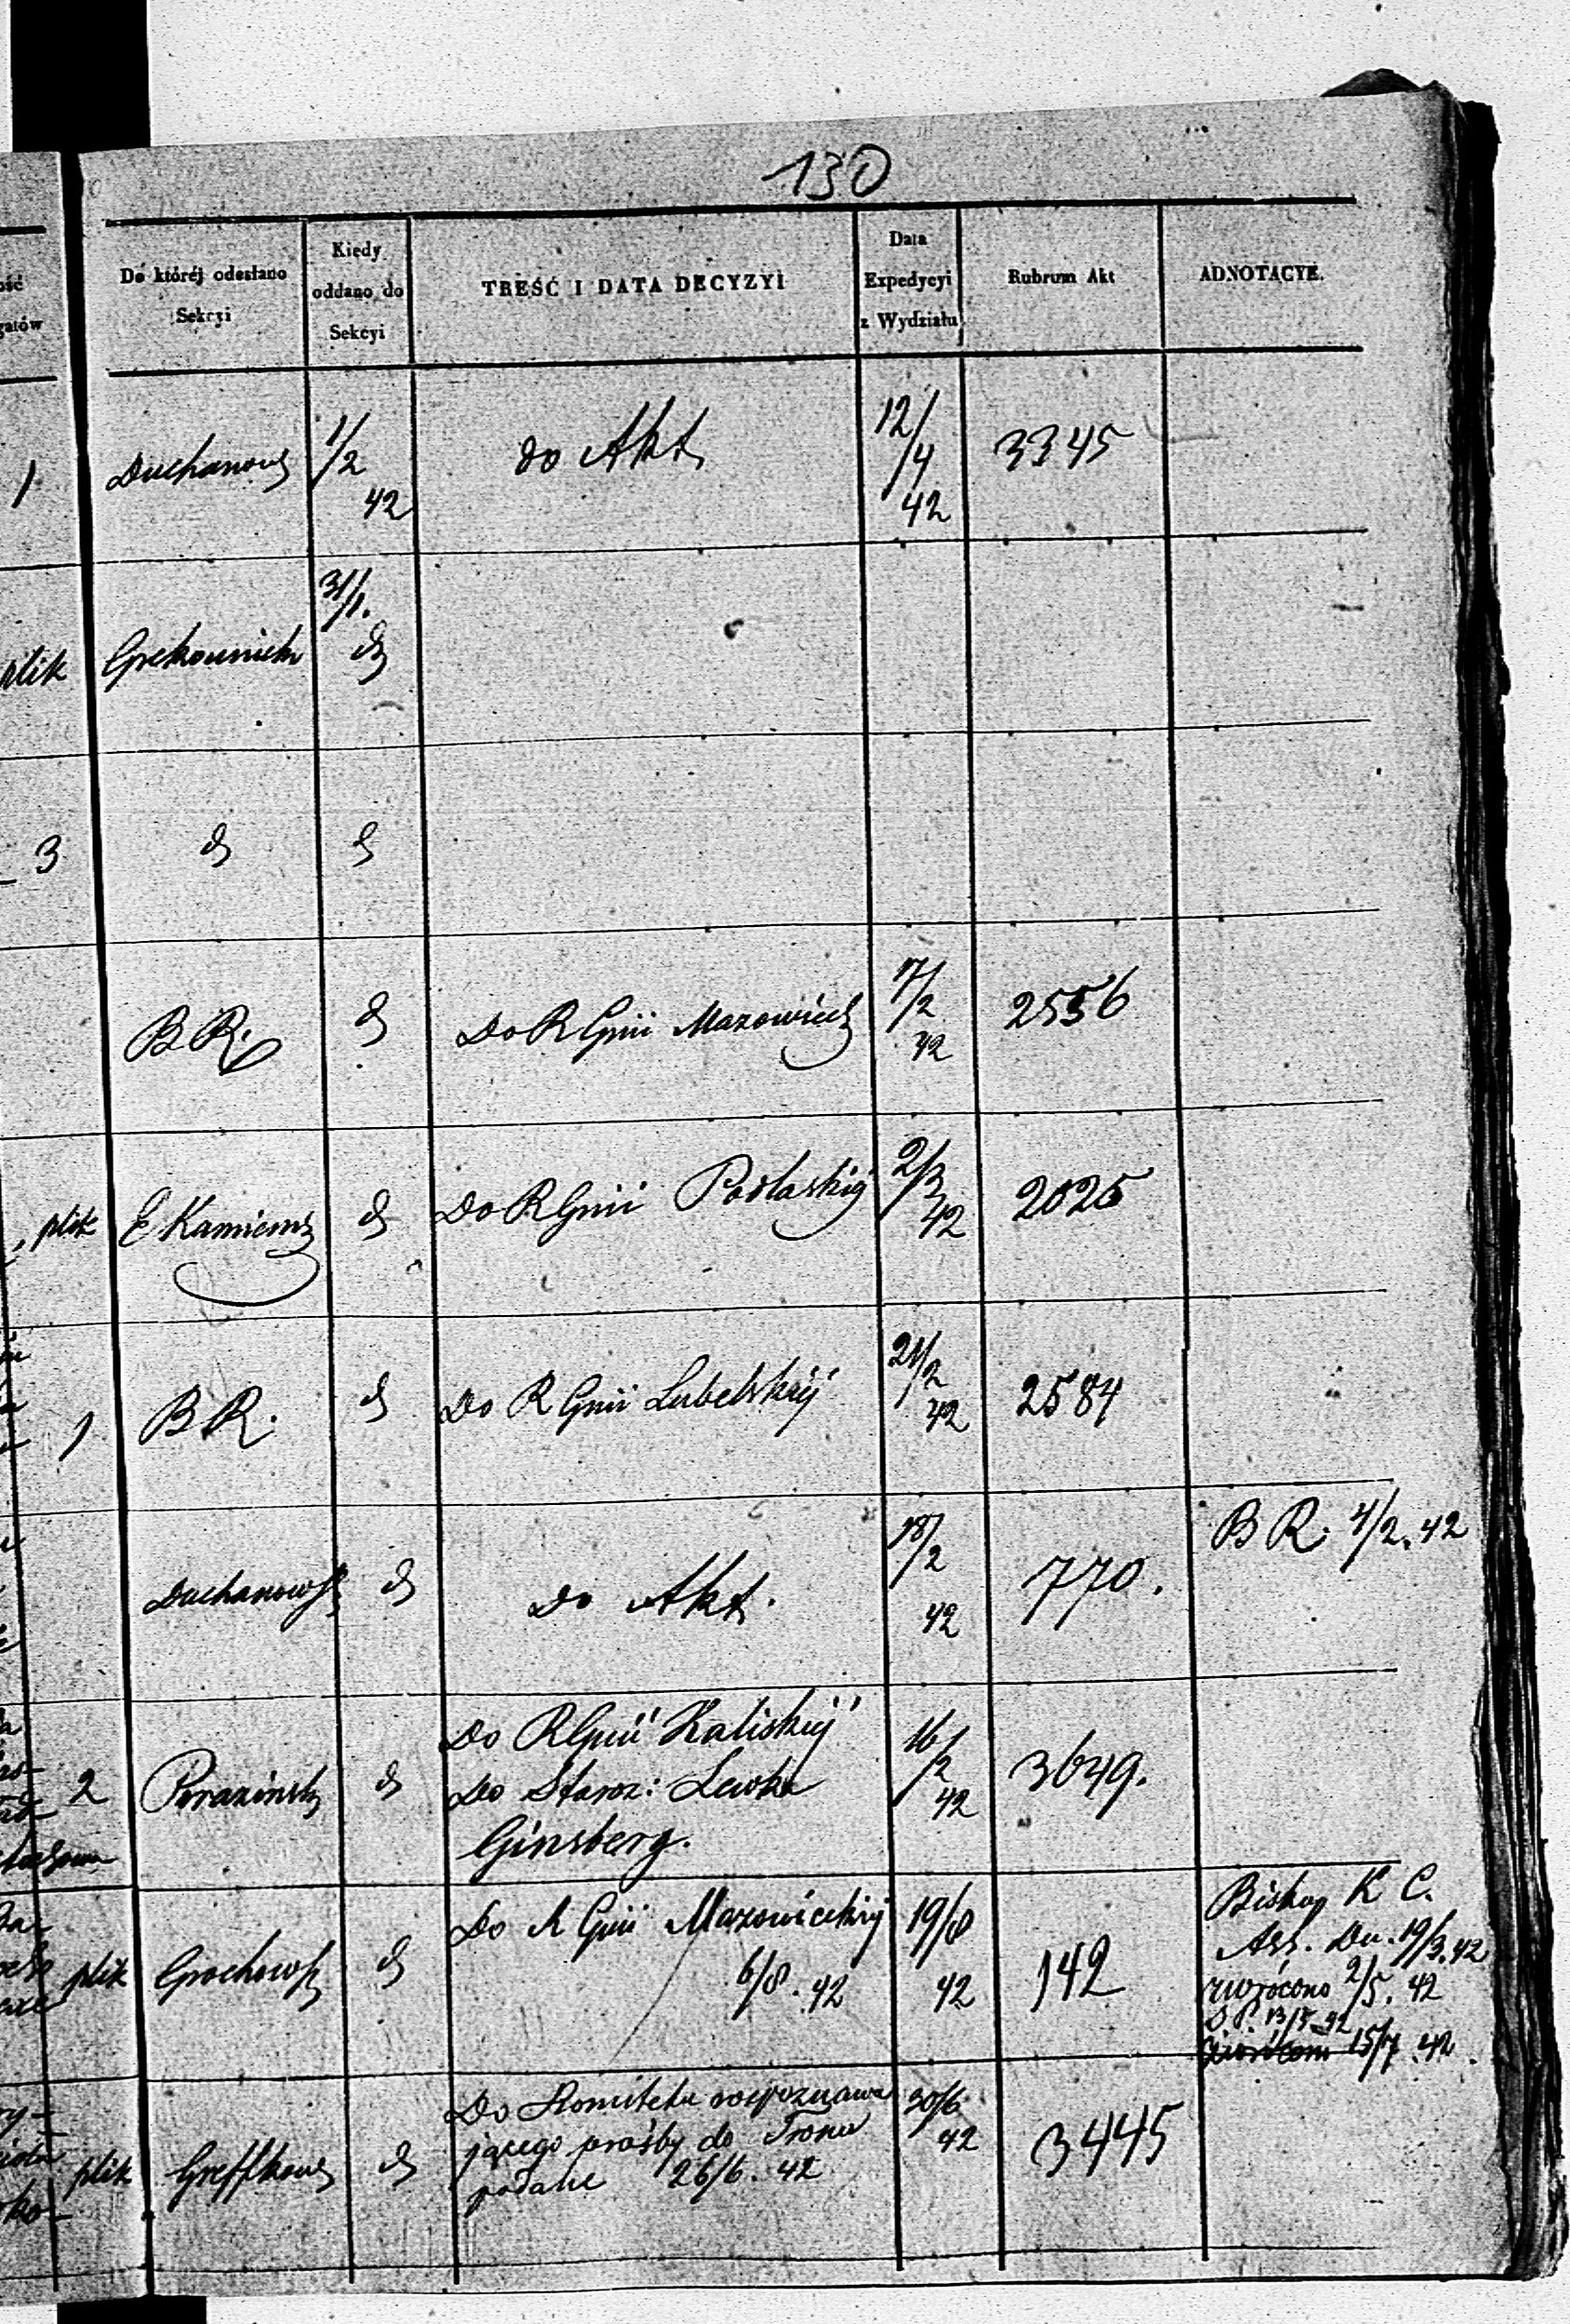 130
ość
gatów
Do któréj odesłano
Sekcyi
Kiedy
oddano do
Sekcyi
TREŚĆ I DATA DECYZYI
Data
Expedycyi
z Wydziału
Rubrum Akt
ADNOTACYE.
1
Duchanows
1/2
42
do Akt
12/4
42
3345
plik
31/1.
d
3
d
d
B R.
d
Do R Gnii Mazowieck
17/2
42
2556
plik
E Kamiens
d
Do R Gnii Podlaskiéj
2/3
42
2025
1
B R.
d
Do R Gnii Lubelskiéj
21/2
42
2584
Duchanows
d
Do Akt.
18/2
42
770.
B R. 4/2. 42
2
d
Do R Gnii Kaliskiéj
Do Staroz: Lewka
Ginsberg.
16/2
42
3649.
plik
Grochows
d
Do R Gnii Mazowieckiéj
6/8. 42
19/8
42
142
Biskup K C.
Ass. Du. 19/3. 42
zwrócono 2/5. 42
zwrócono 15/7. 42.
plik
d
Do Komitetu rozpoznawa
jącego prośby do Tronu
podane 26/6. 42
30/6
42
3445